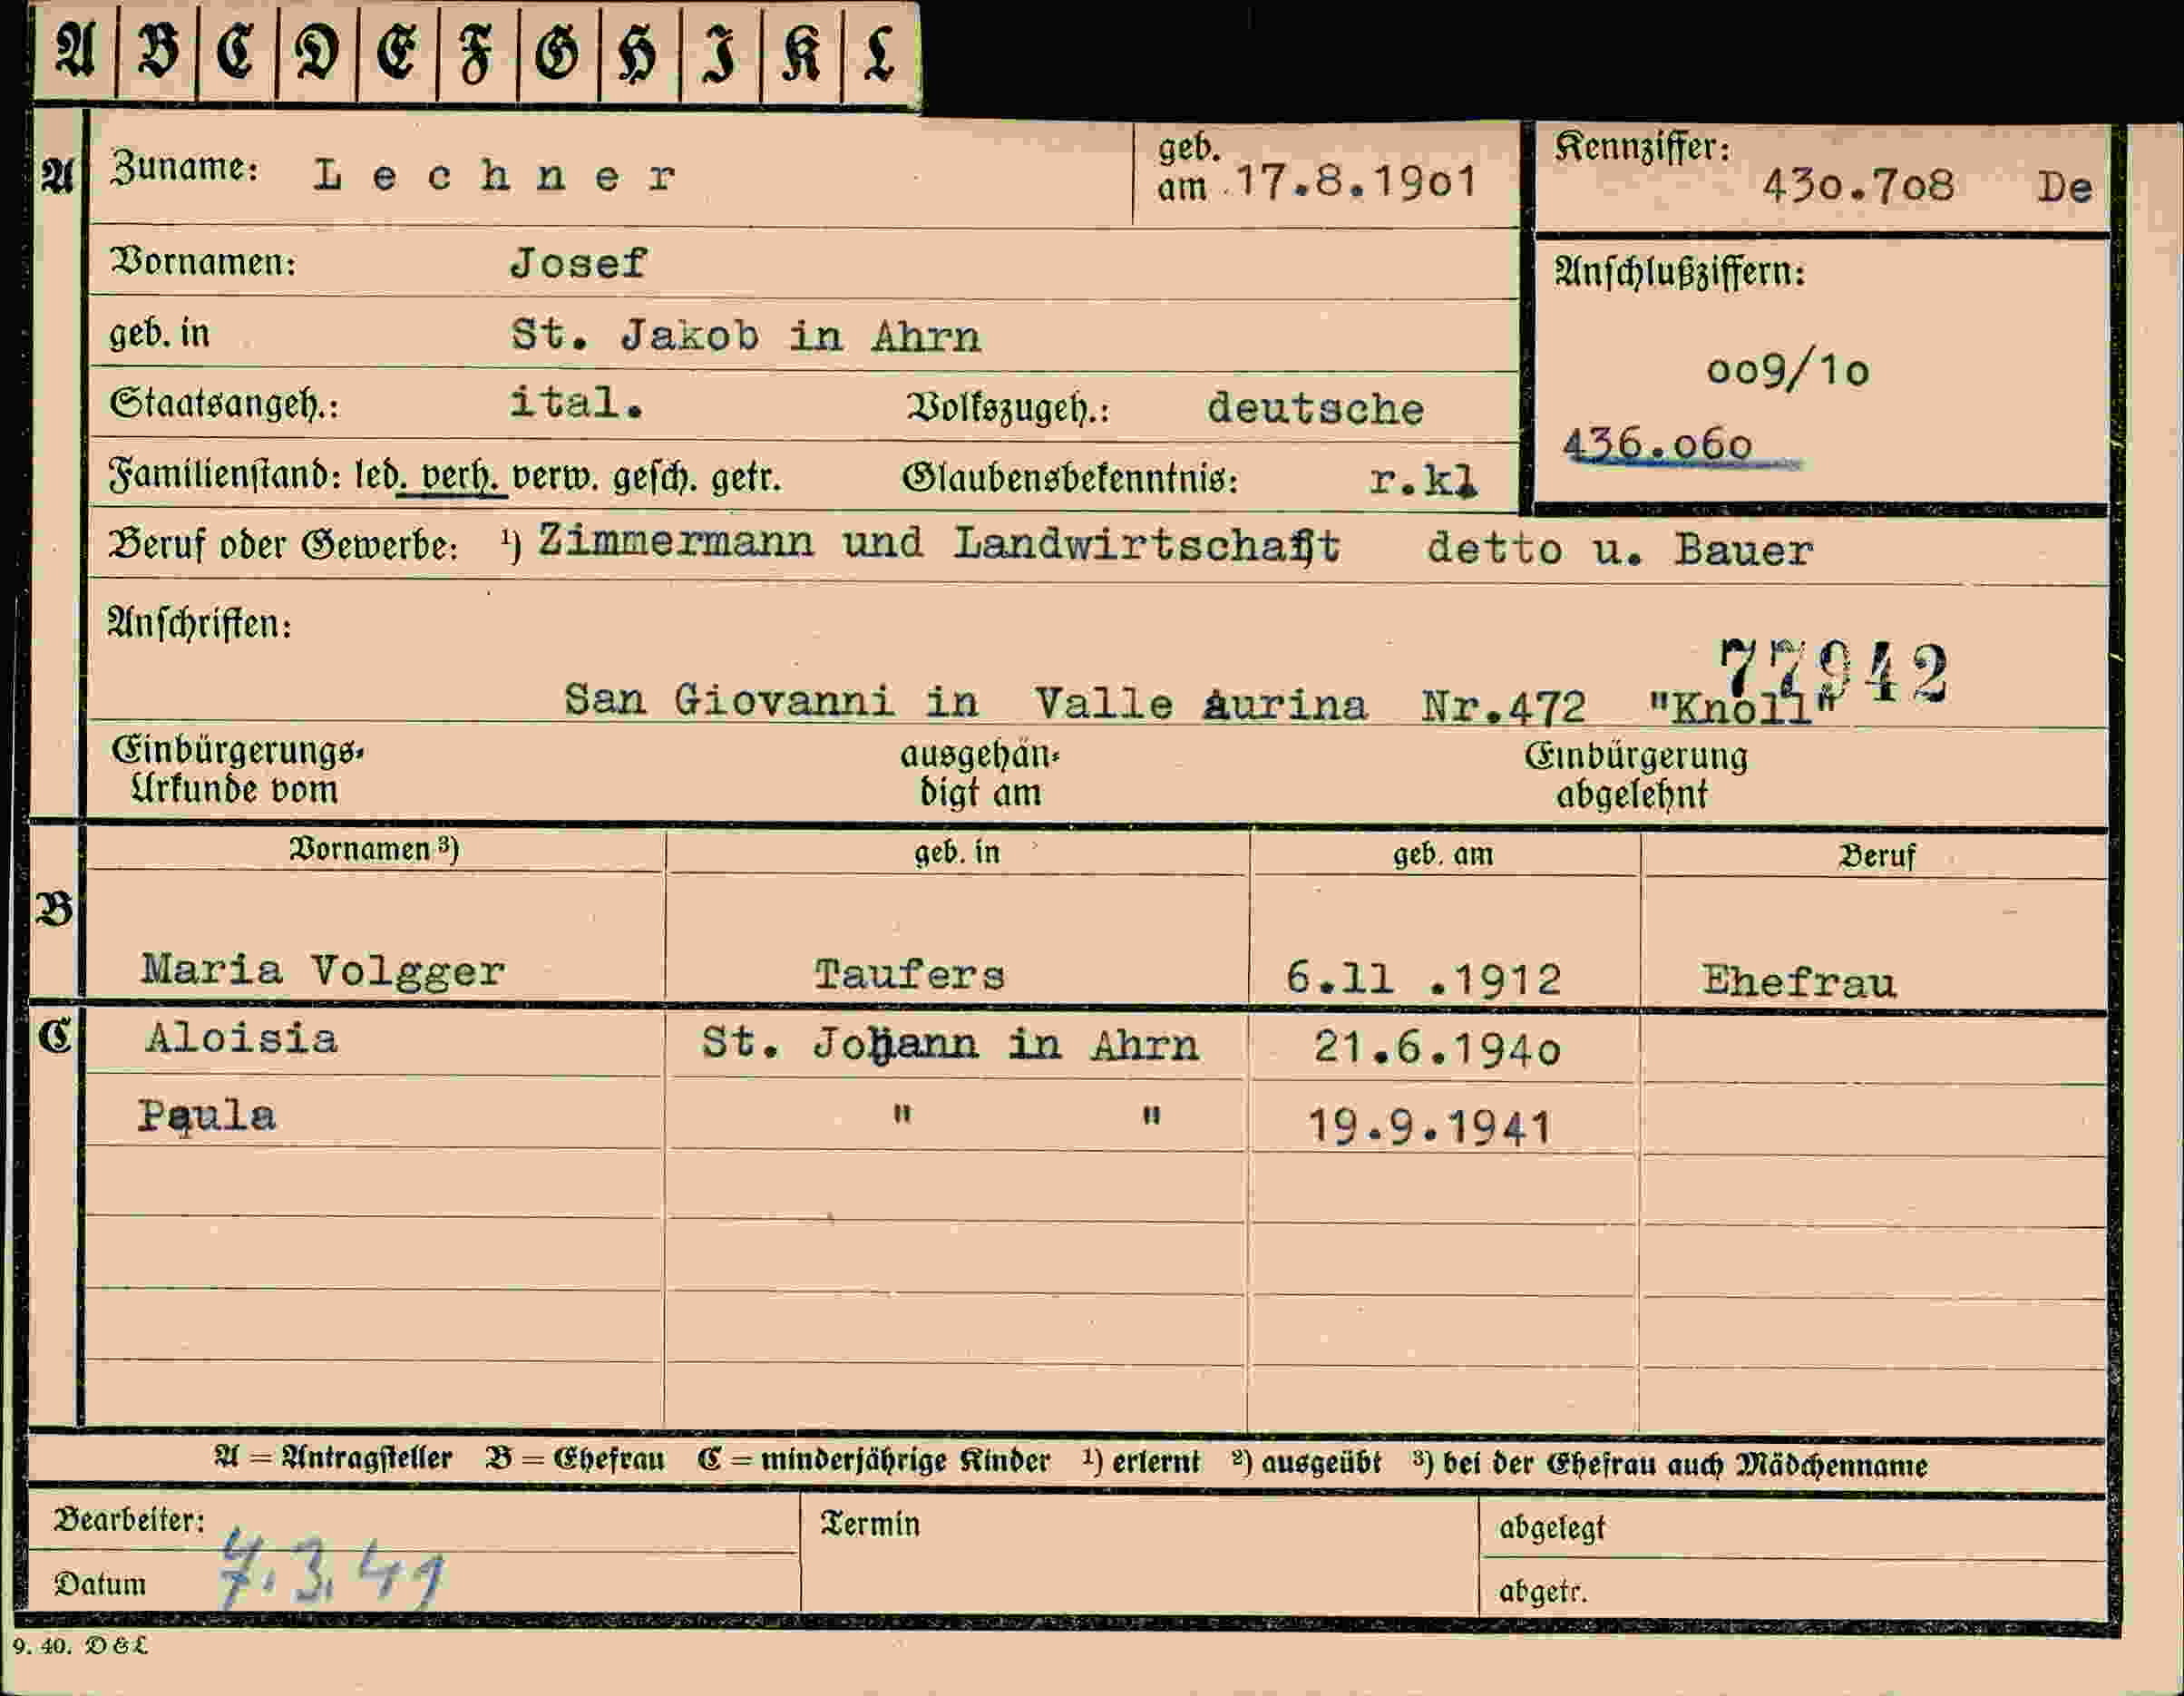 A B C D E F G H I K L
A Zuname: Lechner geb. am 17.8.1901 Kennziffer: 430.708 De
Vornamen: Josef
Anschlußziffern:
geb. in St. Jakob in Ahrn
009/10
Staatsangeh.: ital. Volkszugeh.: deutsche
436.060
Familienstand: led. verh. verw. gesch. getr. Glaubensbekenntnis: r.kl
Beruf oder Gewerbe: ¹) Zimmermann und Landwirtschaft detto u. Bauer
Anschriften:
77942
San Giovanni in Valle Aurina Nr.472 "Knoll"
Einbürgerungs- ausgehän- Einbürgerung
Urkunde vom digt am abgelehnt
Vornamen ³) geb. in geb. am Beruf
B
Maria Volgger Taufers 6.11 .1912 Ehefrau
C Aloisia St. Johann in Ahrn 21.6.1940
Paula " " 19.9.1941
A = Antragsteller B = Ehefrau C = minderjährige Kinder ¹) erlernt ²) ausgeübt ³) bei der Ehefrau auch Mädchenname
Bearbeiter: Termin abgelegt
Datum 7.3.41 abgetr.
9. 40. D & L